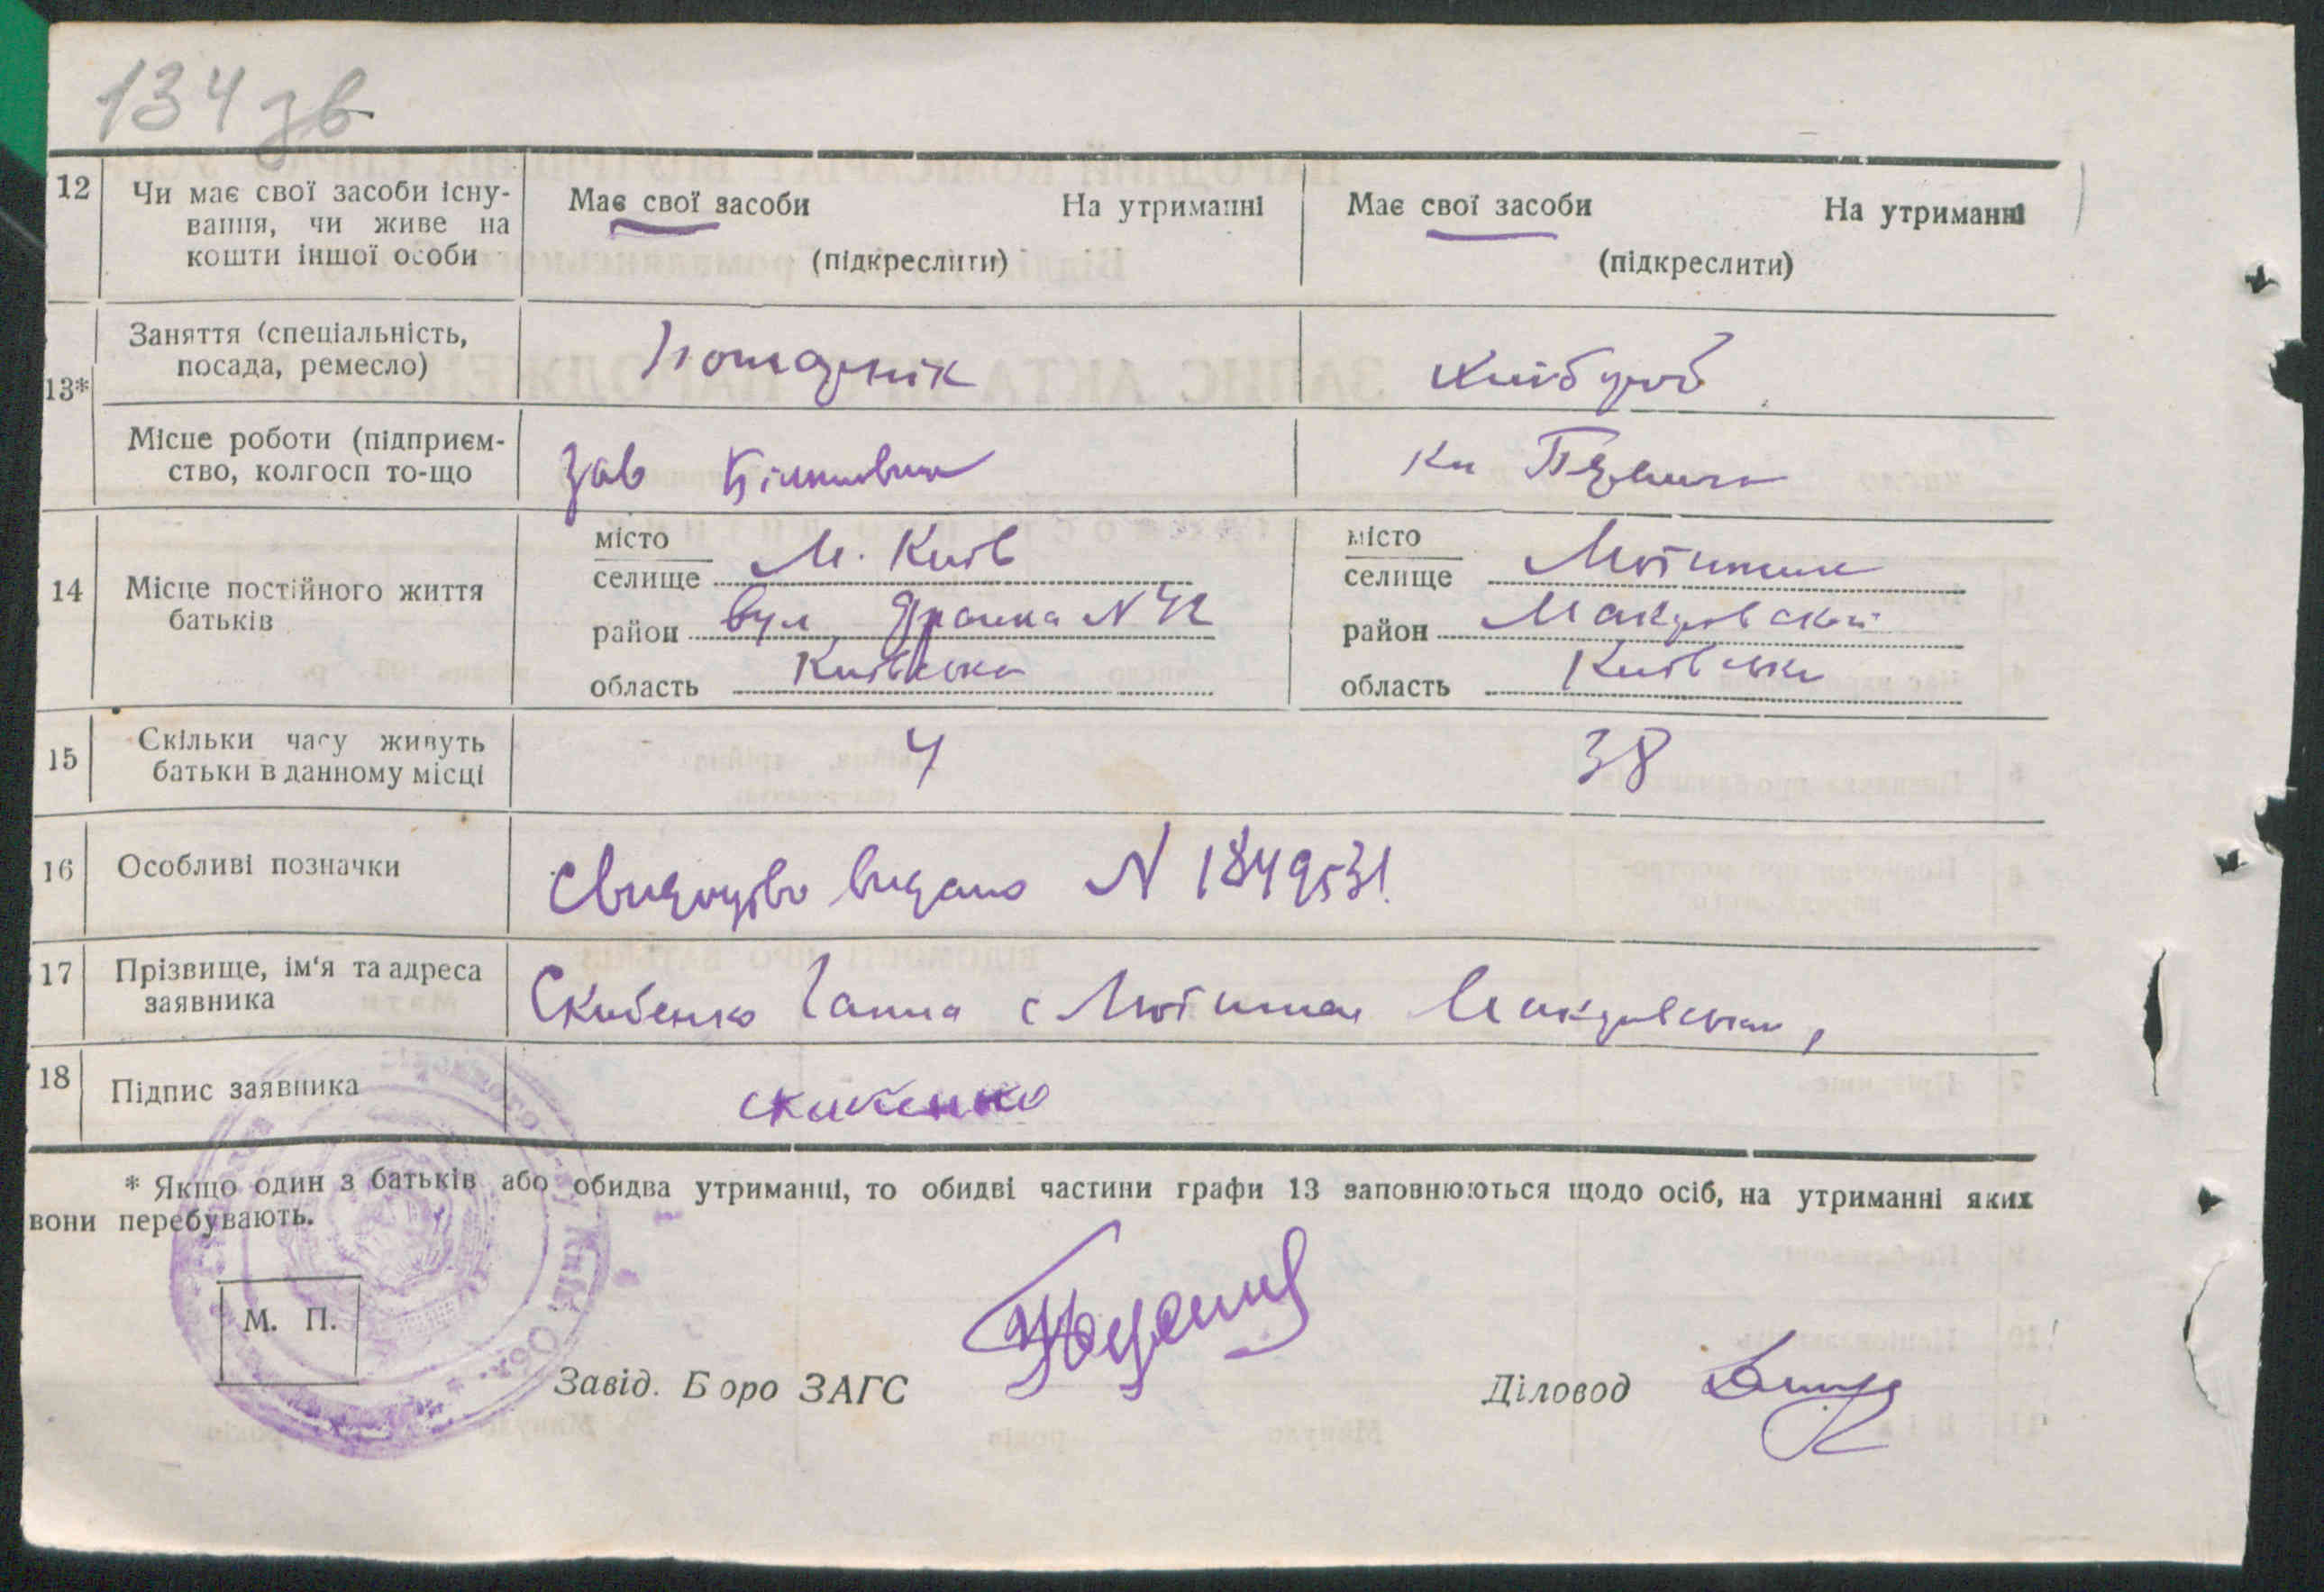 134 зв
12 Чи має свої засоби існу-
вання, чи живе на
кошти іншої особи
Має свої засоби На утриманні
(підкреслити)
Має свої засоби На утриманні
(підкреслити)
13*
Заняття (спеціальність,
посада, ремесло)
хлібороб
Місце роботи (підприєм-
ство, колгосп то-що
Зав Більшовик
14 Місце постійного життя
батьків
місто
селище М. Київ
район вул Франка N 42
область Київська
місто
селище Мотижин
район Макарівський
область Київська
15 Скільки часу живуть
батьки в данному місці
4
38
16 Особливі позначки
Свидоцтво видано N 1849531.
17 Прізвище, ім'я та адреса
заявника
Скибенко Ганна с Мотижин Макарівський,
18 Підпис заявника
скибенко
* Якщо один з батьків або обидва утриманці, то обидві частини графи 13 заповнюються щодо осіб, на утриманні яких
вони перебувають.
М. П.
Завід. Бюро ЗАГС
Діловод